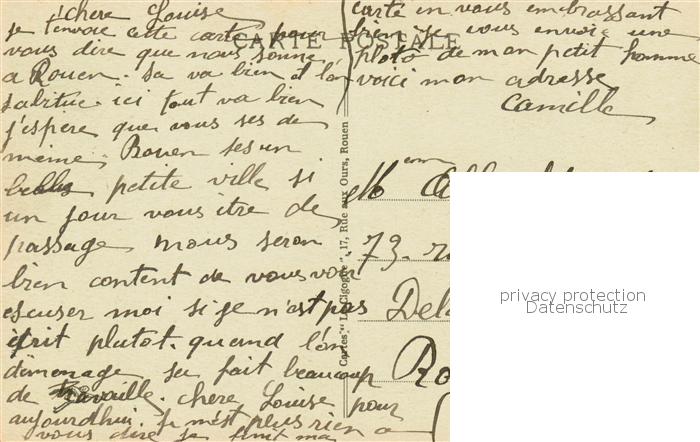 chere Louise
je t'envoie cette carte pour
vous dire que nous somme
a Rouen. sa va bien et l'on
sabitue. ici tout va bien
j'espere que vous ses de
meme, Rouen ses un
belle petite ville si
un jour vous itre de
passage nous seron
bien content de vous voir
escuser moi si je n'est pas
écrit plutot. quand l'on
démenage sa fait beaucoup
de travaille. chere Louise pour
aujourdhui. Je n'est plus rien a
vous dire je finit ma
carte in vous embrassant
bien je vous envoie une
photo de mon petit homme
voici mon adresse
Camille
CARTE POSTALE
Cartes "La Cigogne", 17, Rue aux Ours, Rouen
Mem
73. r
Del
Ro
privacy protection
Datenschutz